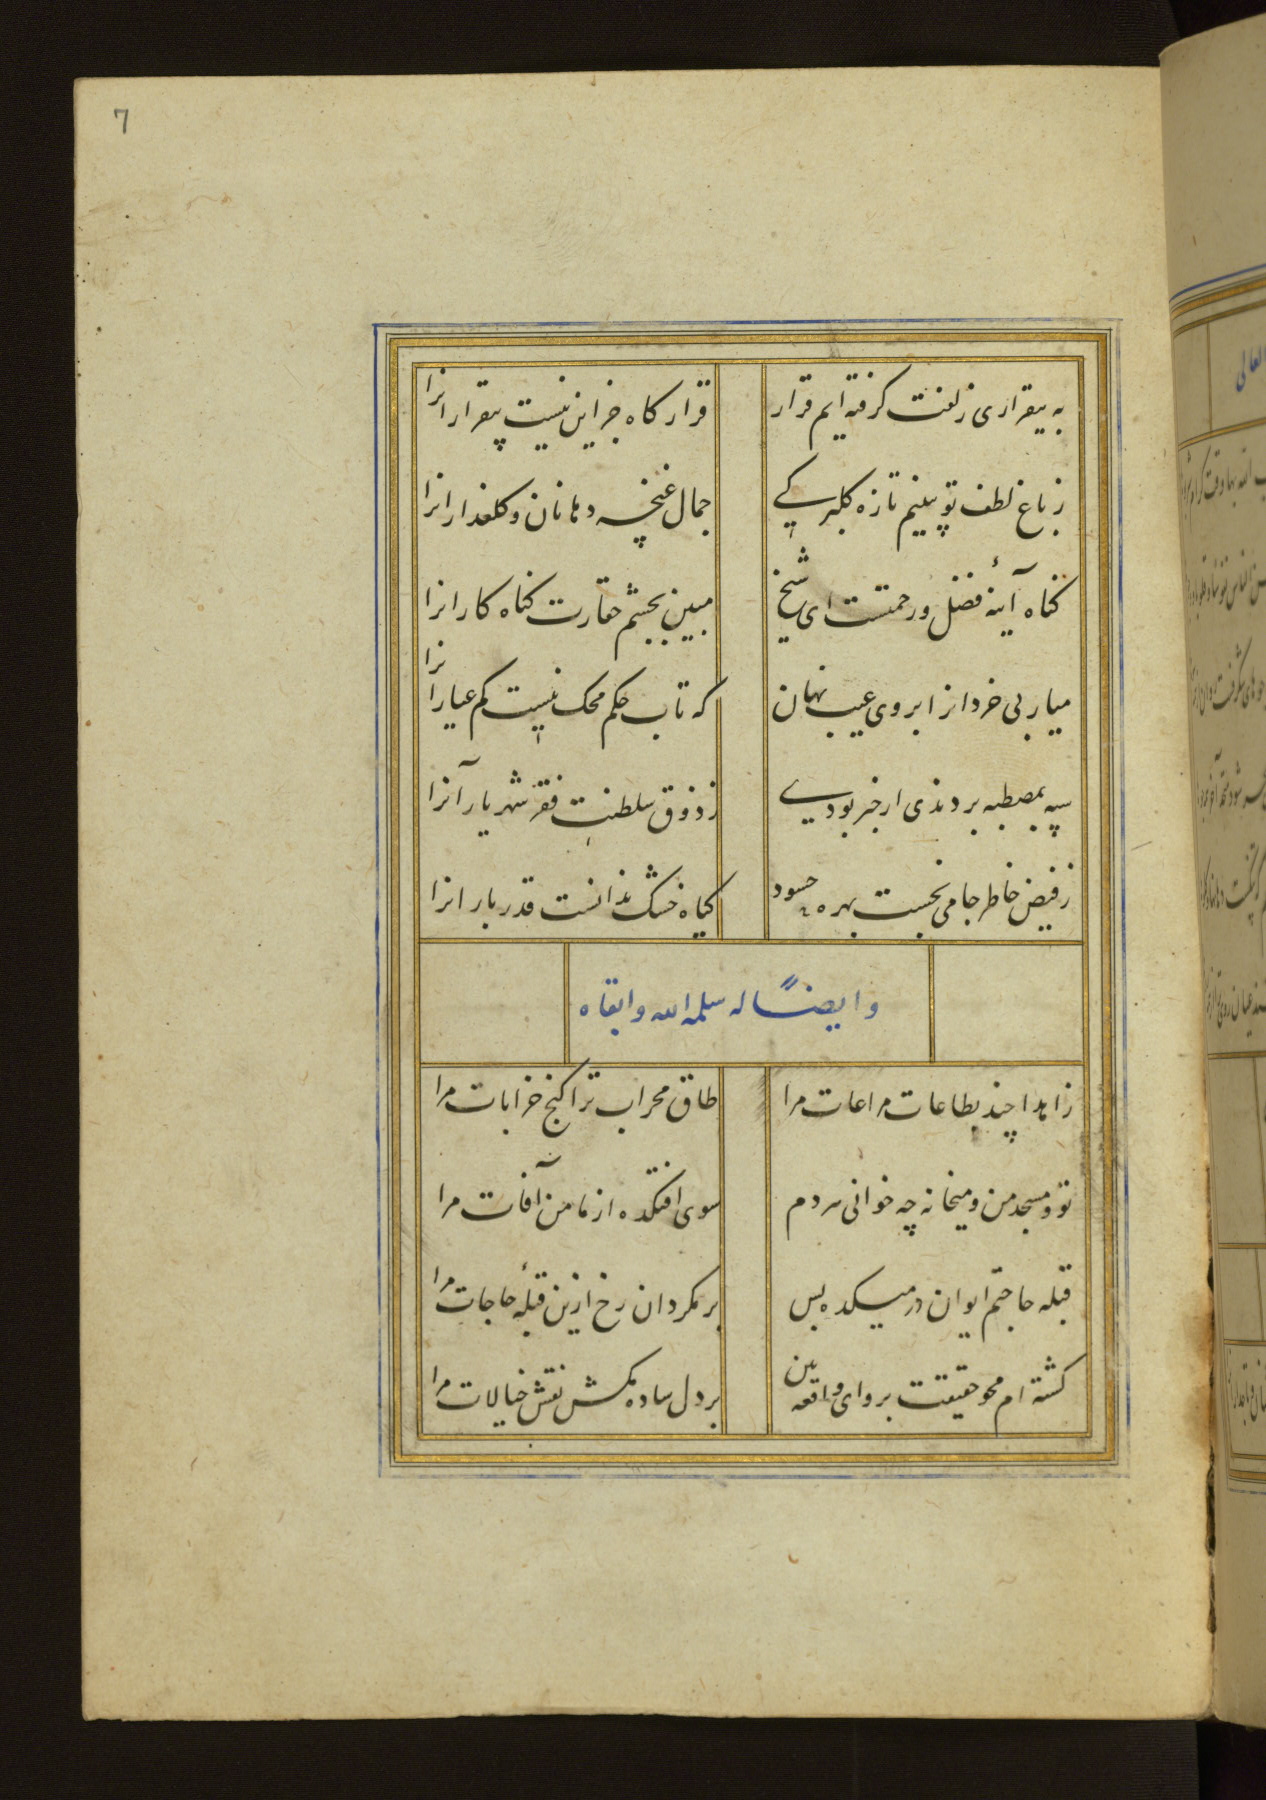 7
به بیقراری زلفت گرفته ایم قرار قرار کاه جز این نیست بیقرارانرا
ز باغ لطف تو بینیم تازه کلبرکی جمال غنچه دهانان و کلعذارانرا
کناه آئینه فضل و رحمتست ای شیخ مبین بچشم حقارت کناه کارانرا
میار بی خردانرا بروی عیب نهان که تاب حکم محک نیست کم عیارانرا
سپه بمصطبه بردندی ار خبر بودی ز ذوق سلطنت فقر شهریارآنرا
ز فیض خاطر جامی نجست بهره حسود کیاه خشک ندانست قدر بارانرا
وایضًا له سلمه الله وابقاه
زاهدا چند بطاعات مراعات مرا طاق محراب ترا کنج خرابات مرا
تو و مسجد من و میخانه چه خوانی هر دم سوی افتکده از مامن آفات مرا
قبله حاجتم ایوان در میکده بس بر مکردان رخ ازین قبلهٔ حاجات مرا
کشته ام محو حقیقت برو ای واقعه بین بر دل ساده مکش نقش خیالات مرا